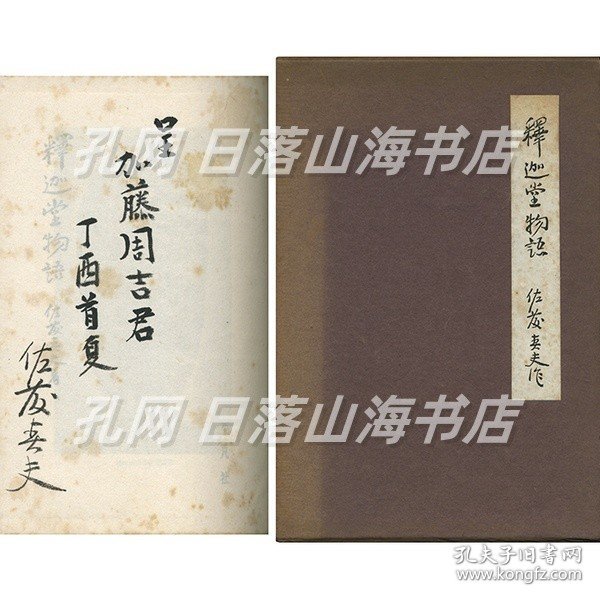 呈
加藤周吉君
丁酉首夏
佐藤春夫
釋迦堂物語
釋迦堂物語 佐藤春夫作
孔网 日落山海书店
孔网 日落山海书店
孔夫子旧书网
www.kongfz.com